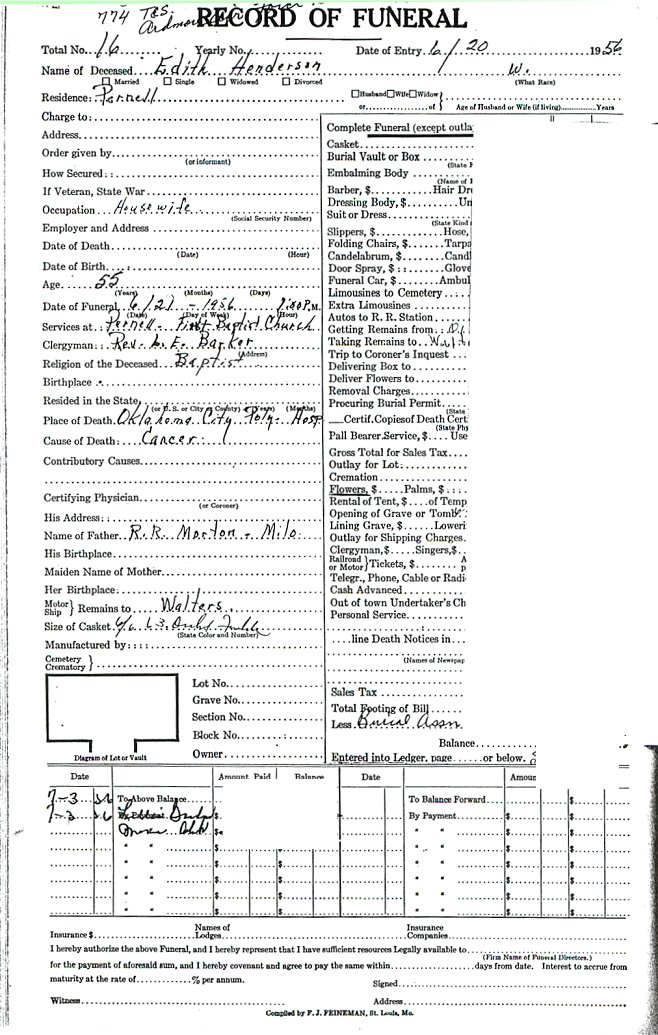 774 T&S.
RECORD OF FUNERAL
Total No. 16 Yearly No. Date of Entry 6/20 1956
Name of Deceased Edith Henderson W.
Married Single Widowed Divorced (What Race)
Residence: Pernell Husband Wife Widow
or of Age of Husband or Wife (if living) Years
Charge to:
Address
Order given by
(or informant)
How Secured:
If Veteran, State War
Occupation Housewife
(Social Security Number)
Employer and Address
Date of Death
(Date) (Hour)
Date of Birth
Age 55
(Years) (Months) (Days)
Date of Funeral 6/21 - 1956 P.M.
(Date) (Day of Week) (Hour)
Services at: Pernell - First Baptist Church
Clergyman: Rev. L. E. Barker
(Address)
Religion of the Deceased Baptist
Birthplace
Resided in the State
(or U. S. or City or County) (Years) (Months)
Place of Death Oklahoma City Poly. Hosp
Cause of Death: Cancer
Contributory Causes
Certifying Physician
(or Coroner)
His Address:
Name of Father R. R. Morton - Milo
His Birthplace
Maiden Name of Mother
Her Birthplace
Motor Ship } Remains to Walters.
Size of Casket
(State Color and Number)
Manufactured by
Cemetery
Crematory }
Lot No.
Grave No.
Section No.
Block No.
Owner
Diagram of Lot or Vault
Complete Funeral (except outla
Casket
Burial Vault or Box
(State
Embalming Body
(Name of
Barber, $ Hair Dre
Dressing Body, $ Un
Suit or Dress
(State Kind
Slippers, $ Hose,
Folding Chairs, $ Tarpa
Candelabrum, $ Candl
Door Spray, $ Glove
Funeral Car, $ Ambul
Limousines to Cemetery
Extra Limousines
Autos to R. R. Station
Getting Remains from:
Taking Remains to
Trip to Coroner's Inquest
Delivering Box to
Deliver Flowers to
Removal Charges
Procuring Burial Permit
(State
Certif. Copies of Death Cert
(State Phy
Pall Bearer Service, $ Use
Gross Total for Sales Tax
Outlay for Lot:
Cremation
Flowers, $ Palms, $
Rental of Tent, $ of Temp
Opening of Grave or Tomb
Lining Grave, $ Loweri
Outlay for Shipping Charges
Clergyman, $ Singers, $
Railroad or Motor } Tickets, $
Telegr., Phone, Cable or Radi
Cash Advanced
Out of town Undertaker's Ch
Personal Service
line Death Notices in
(Names of Newspap
Sales Tax
Total Footing of Bill
Less Burial Assn.
Balance
Entered into Ledger, page or below.
Date Amount Paid Balance Date Amoun
7-3 56 To Above Balance $ To Balance Forward $
7-3 56 $ By Payment $
Insurance $ Names of Lodges Insurance Companies
I hereby authorize the above Funeral, and I hereby represent that I have sufficient resources Legally available to
(Firm Name of Funeral Directors.)
for the payment of aforesaid sum, and I hereby covenant and agree to pay the same within days from date. Interest to accrue from
maturity at the rate of % per annum. Signed
Witness Address
Compiled by F. J. FEINEMAN, St. Louis, Mo.